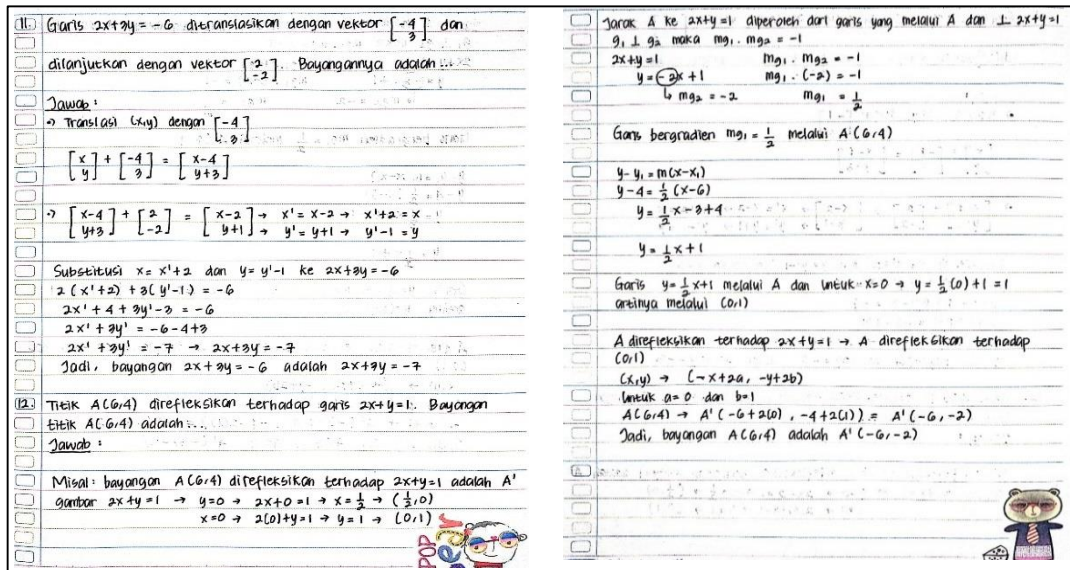 11. Garis 2x+3y = -6 ditranslasikan dengan vektor [-4 3] dan
dilanjutkan dengan vektor [2 -2]. Bayangannya adalah ...
Jawab :
•> Translasi (x,y) dengan [-4 3]
[x y] + [-4 3] = [x-4 y+3]
•> [x-4 y+3] + [2 -2] = [x-2 y+1] → x' = x-2 → x'+2 = x
→ y' = y+1 → y'-1 = y
Substitusi x = x'+2 dan y = y'-1 ke 2x+3y = -6
2 (x'+2) + 3(y'-1) = -6
2x' + 4 + 3y' - 3 = -6
2x' + 3y' = -6 - 4 + 3
2x' + 3y' = -7 → 2x+3y = -7
Jadi, bayangan 2x+3y = -6 adalah 2x+3y = -7
12. Titik A(6,4) direfleksikan terhadap garis 2x+y = 1. Bayangan
titik A(6,4) adalah ...
Jawab :
Misal : bayangan A(6,4) direfleksikan terhadap 2x+y = 1 adalah A'
gambar 2x+y = 1 → y=0 → 2x+0 = 1 → x = 1/2 → (1/2,0)
x=0 → 2(0)+y = 1 → y = 1 → (0,1)
POP
Bear
Jarak A ke 2x+y=1 diperoleh dari garis yang melalui A dan ⊥ 2x+y=1
g₁ ⊥ g₂ maka mg₁ . mg₂ = -1
2x+y = 1 mg₁ . mg₂ = -1
y = -2x + 1 mg₁ . (-2) = -1
↳ mg₂ = -2 mg₁ = 1/2
Garis bergradien mg₁ = 1/2 melalui A (6,4)
y - y₁ = m(x-x₁)
y - 4 = 1/2 (x-6)
y = 1/2 x - 3 + 4
y = 1/2 x + 1
Garis y = 1/2 x+1 melalui A dan untuk x=0 → y = 1/2 (0) + 1 = 1
artinya melalui (0,1)
A direfleksikan terhadap 2x+y = 1 → A direfleksikan terhadap
(0,1)
(x,y) → (-x+2a, -y+2b)
Untuk a = 0 dan b=1
A(6,4) → A' (-6+2(0) , -4+2(1)) = A' (-6, -2)
Jadi, bayangan A(6,4) adalah A' (-6,-2)